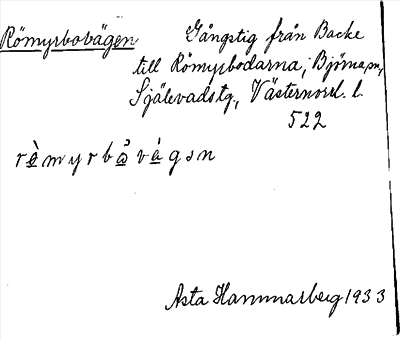 Römyrbovägen Gångstig från Backe
till Römyrbodarna, Björna sn,
Själevads tg., Västernorrl. l.
522
rö̀myrbω̉vä́gən
Asta Hammarberg 1933